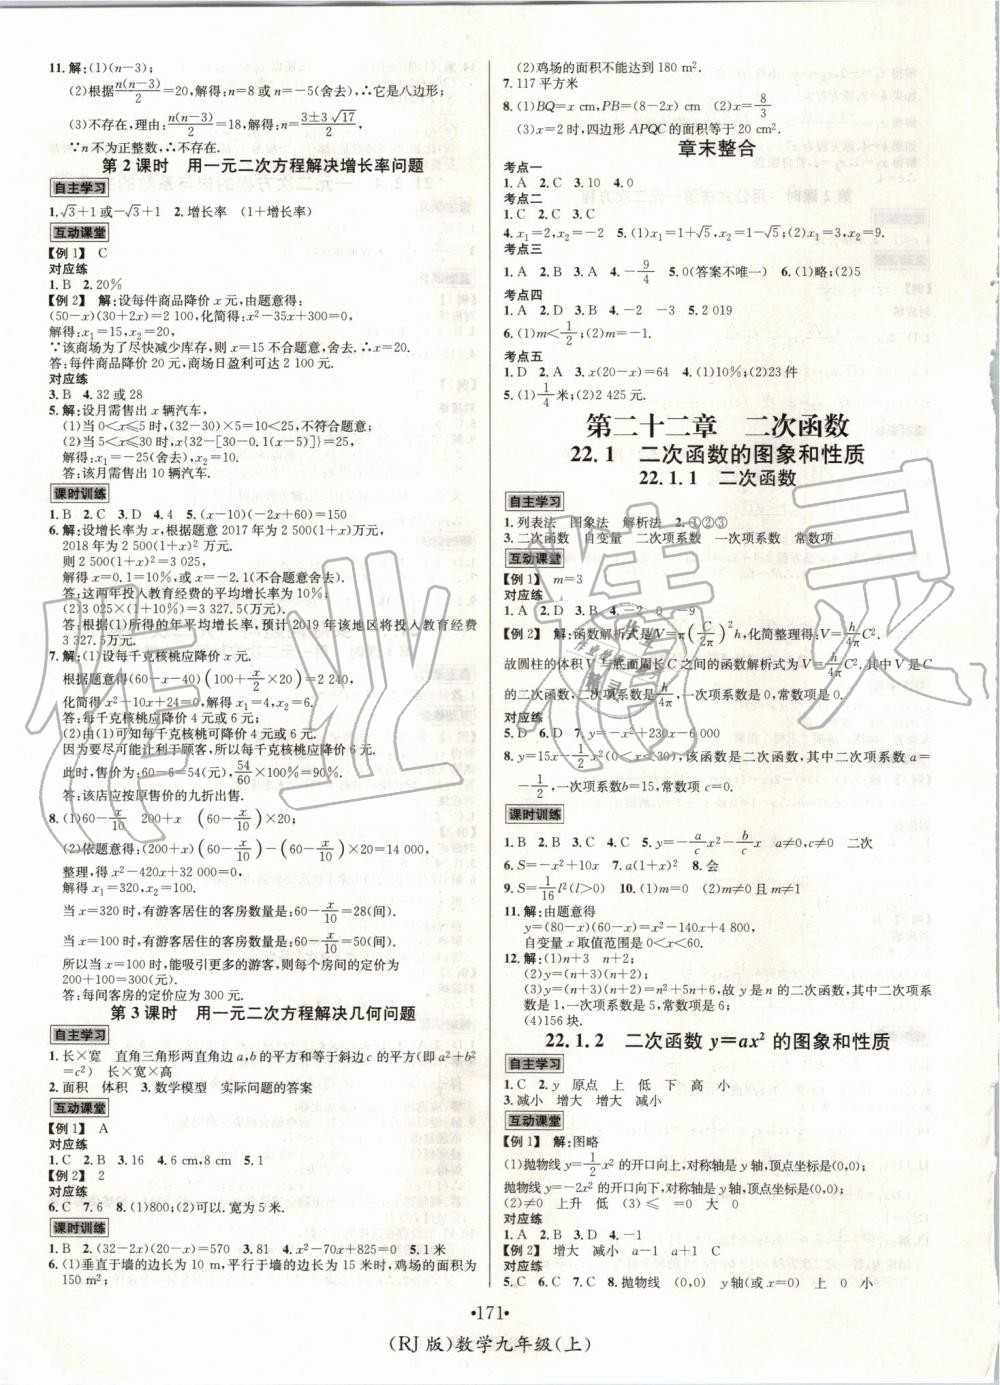 11.解:(1)(n−3);
(2)根据n(n−3)/2=20,解得:n=8或n=−5(舍去),∴它是八边形;
(3)不存在,理由:n(n−3)/2=18,解得:n=(3±3√17)/2,
∵n不为正整数,∴不存在.
第2课时 用一元二次方程解决增长率问题
自主学习
1.√3+1或−√3+1 2.增长率 (1+增长率)
互动课堂
【例1】 C
对应练
1.B 2.20%
【例2】 解:设每件商品降价x元,由题意得:
(50−x)(30+2x)=2 100,化简得:x²−35x+300=0,
解得:x₁=15,x₂=20.
∵该商场为了尽快减少库存,则x=15不合题意,舍去.∴x=20.
答:每件商品降价20元,商场日盈利可达2 100元.
对应练
3.B 4.32或28
5.解:设月需售出x辆汽车,
(1)当0<x≤5时,(32−30)×5=10<25,不符合题意;
(2)当5<x≤30时,x{32−[30−0.1(x−5)]}=25,
解得:x₁=−25(舍去),x₂=10.
答:该月需售出10辆汽车.
课时训练
1.B 2.C 3.D 4.4 5.(x−10)(−2x+60)=150
6.解:设增长率为x,根据题意2017年为2 500(1+x)万元,
2018年为2 500(1+x)²万元.
则2 500(1+x)²=3 025,
解得x=0.1=10%,或x=−2.1(不合题意舍去).
答:这两年投入教育经费的平均增长率为10%;
(2)3 025×(1+10%)=3 327.5(万元).
故根据(1)所得的年平均增长率,预计2019年该地区将投入教育经费
3 327.5万元.
7.解:(1)设每千克核桃应降价x元.
根据题意得(60−x−40)(100+x/2×20)=2 240,
化简得x²−10x+24=0,解得x₁=4,x₂=6.
答:每千克核桃应降价4元或6元;
(2)由(1)可知每千克核桃可降价4元或6元.
因为要尽可能让利于顾客,所以每千克核桃应降价6元.
此时,售价为:60−6=54(元),54/60×100%=90%.
答:该店应按原售价的九折出售.
8.(1)60−x/10 200+x (60−x/10)×20;
(2)依题意得:(200+x)(60−x/10)−(60−x/10)×20=14 000,
整理,得x²−420x+32 000=0,
解得x₁=320,x₂=100.
当x=320时,有游客居住的客房数量是:60−x/10=28(间).
当x=100时,有游客居住的客房数量是:60−x/10=50(间).
所以当x=100时,能吸引更多的游客,则每个房间的定价为
200+100=300(元).
答:每间客房的定价应为300元.
第3课时 用一元二次方程解决几何问题
自主学习
1.长×宽 直角三角形两直角边a,b的平方和等于斜边c的平方(即a²+b²
=c²) 长×宽×高
2.面积 体积 3.数学模型 实际问题的答案
互动课堂
【例1】 A
对应练
1.C 2.B 3.16 4.6 cm,8 cm 5.1
【例2】 2
对应练
6.C 7.6 8.(1)800;(2)可以.宽为5米.
课时训练
1.B 2.(32−2x)(20−x)=570 3.81 4.x²−70x+825=0 5.1米
6.(1)垂直于墙的边长为10 m,平行于墙的边长为15米时,鸡场的面积为
150 m²;
(2)鸡场的面积不能达到180 m².
7.117平方米
8.(1)BQ=x cm,PB=(8−2x) cm (2)x=8/3
(3)x=2时,四边形APQC的面积等于20 cm².
章末整合
考点一
1.A 2.C 3.10 4.0
考点二
1.C 2.C 3.C
4.x₁=2,x₂=−2 5.(1)x₁=1+√5,x₂=1−√5;(2)x₁=7,x₂=9.
考点三
1.A 2.B 3.A 4.−9/4 5.0(答案不唯一) 6.(1)略;(2)5
考点四
1.A 2.D 3.B 4.−2 −3 5.2 019
6.(1)m<1/2;(2)m=−1.
考点五
1.D 2.A 3.x(20−x)=64 4.(1)10%;(2)23件
5.(1)1/4米;(2)2 425元.
第二十二章 二次函数
22.1 二次函数的图象和性质
22.1.1 二次函数
自主学习
1.列表法 图象法 解析法 2.①②③
3.二次函数 自变量 二次项系数 一次项系数 常数项
互动课堂
【例1】 m=3
对应练
1.A 2.D 3.B 4.−2 0 −9
【例2】 解:函数解析式是V=π(C/2π)²h,化简整理得:V=h/4π C².
故圆柱的体积V与底面周长C之间的函数解析式为V=h/4π C².其中V是C
的二次函数,二次项系数是h/4π,一次项系数是0,常数项是0.
对应练
5.D 6.D 7.y=−x²+230x−6 000
8.y=15x−1/2x²(0<x<30),该函数是二次函数,其中二次项系数a=
−1/2,一次项系数b=15,常数项c=0.
课时训练
1.B 2.B 3.C 4.C 5.y=−a/c x²−b/c x a≠0,c≠0 二次
6.S=−x²+10x 7.a(1+x)² 8.会
9.S=1/16 l²(l>0) 10.(1)m=0 (2)m≠0且m≠1
11.解:由题意得
y=(80−x)(60−x)=x²−140x+4 800,
自变量x取值范围是0<x<60.
12.解:(1)(n+3)(n+2);
(2)y=(n+3)(n+2);
(3)y=(n+3)(n+2)=n²+5n+6,故y是n的二次函数,其中二次项系
数是1,一次项系数是5,常数项是6;
(4)156块.
22.1.2 二次函数y=ax²的图象和性质
自主学习
1.C 2.y 原点 上 低 下 高 小
3.减小 增大 增大 减小
互动课堂
【例1】 解:图略
(1)抛物线y=1/2x²的开口向上,对称轴是y轴,顶点坐标是(0,0);
抛物线y=−2x²的开口向下,对称轴是y轴,顶点坐标是(0,0).
(2)≠0 上升 低 (3)≤ =0 大 0
对应练
1.A 2.B 3.D 4.−1
【例2】 增大 减小 a−1 a+1 C
对应练
5.C 6.C 7.C 8.抛物线 (0,0) y轴(或x=0) 上 0 小
•171•
(RJ版)数学九年级(上)
作业精灵